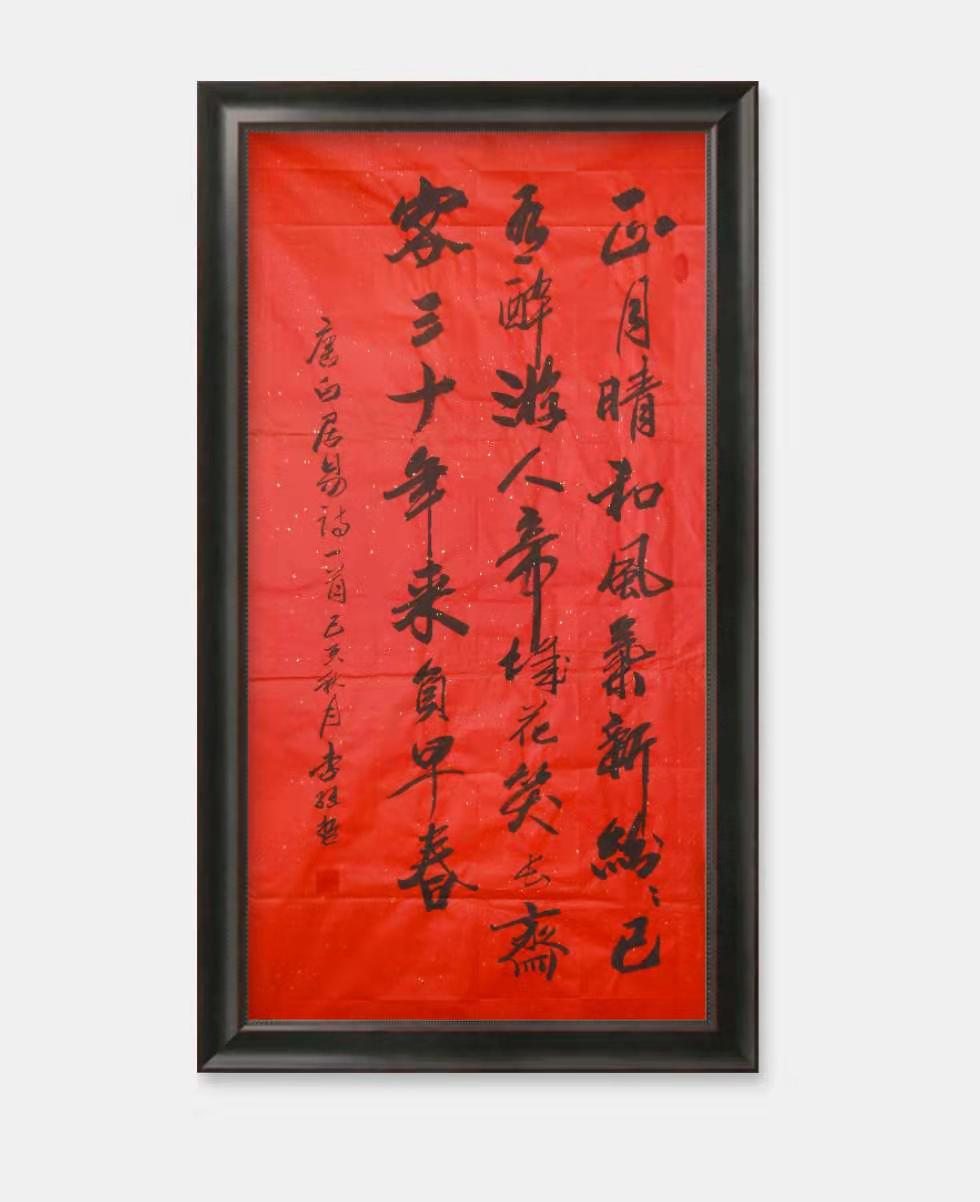 正月晴和風氣新紛〻已
有醉游人帝城花笑长齋
客三十年来負早春
唐白居易诗一首己亥秋月李